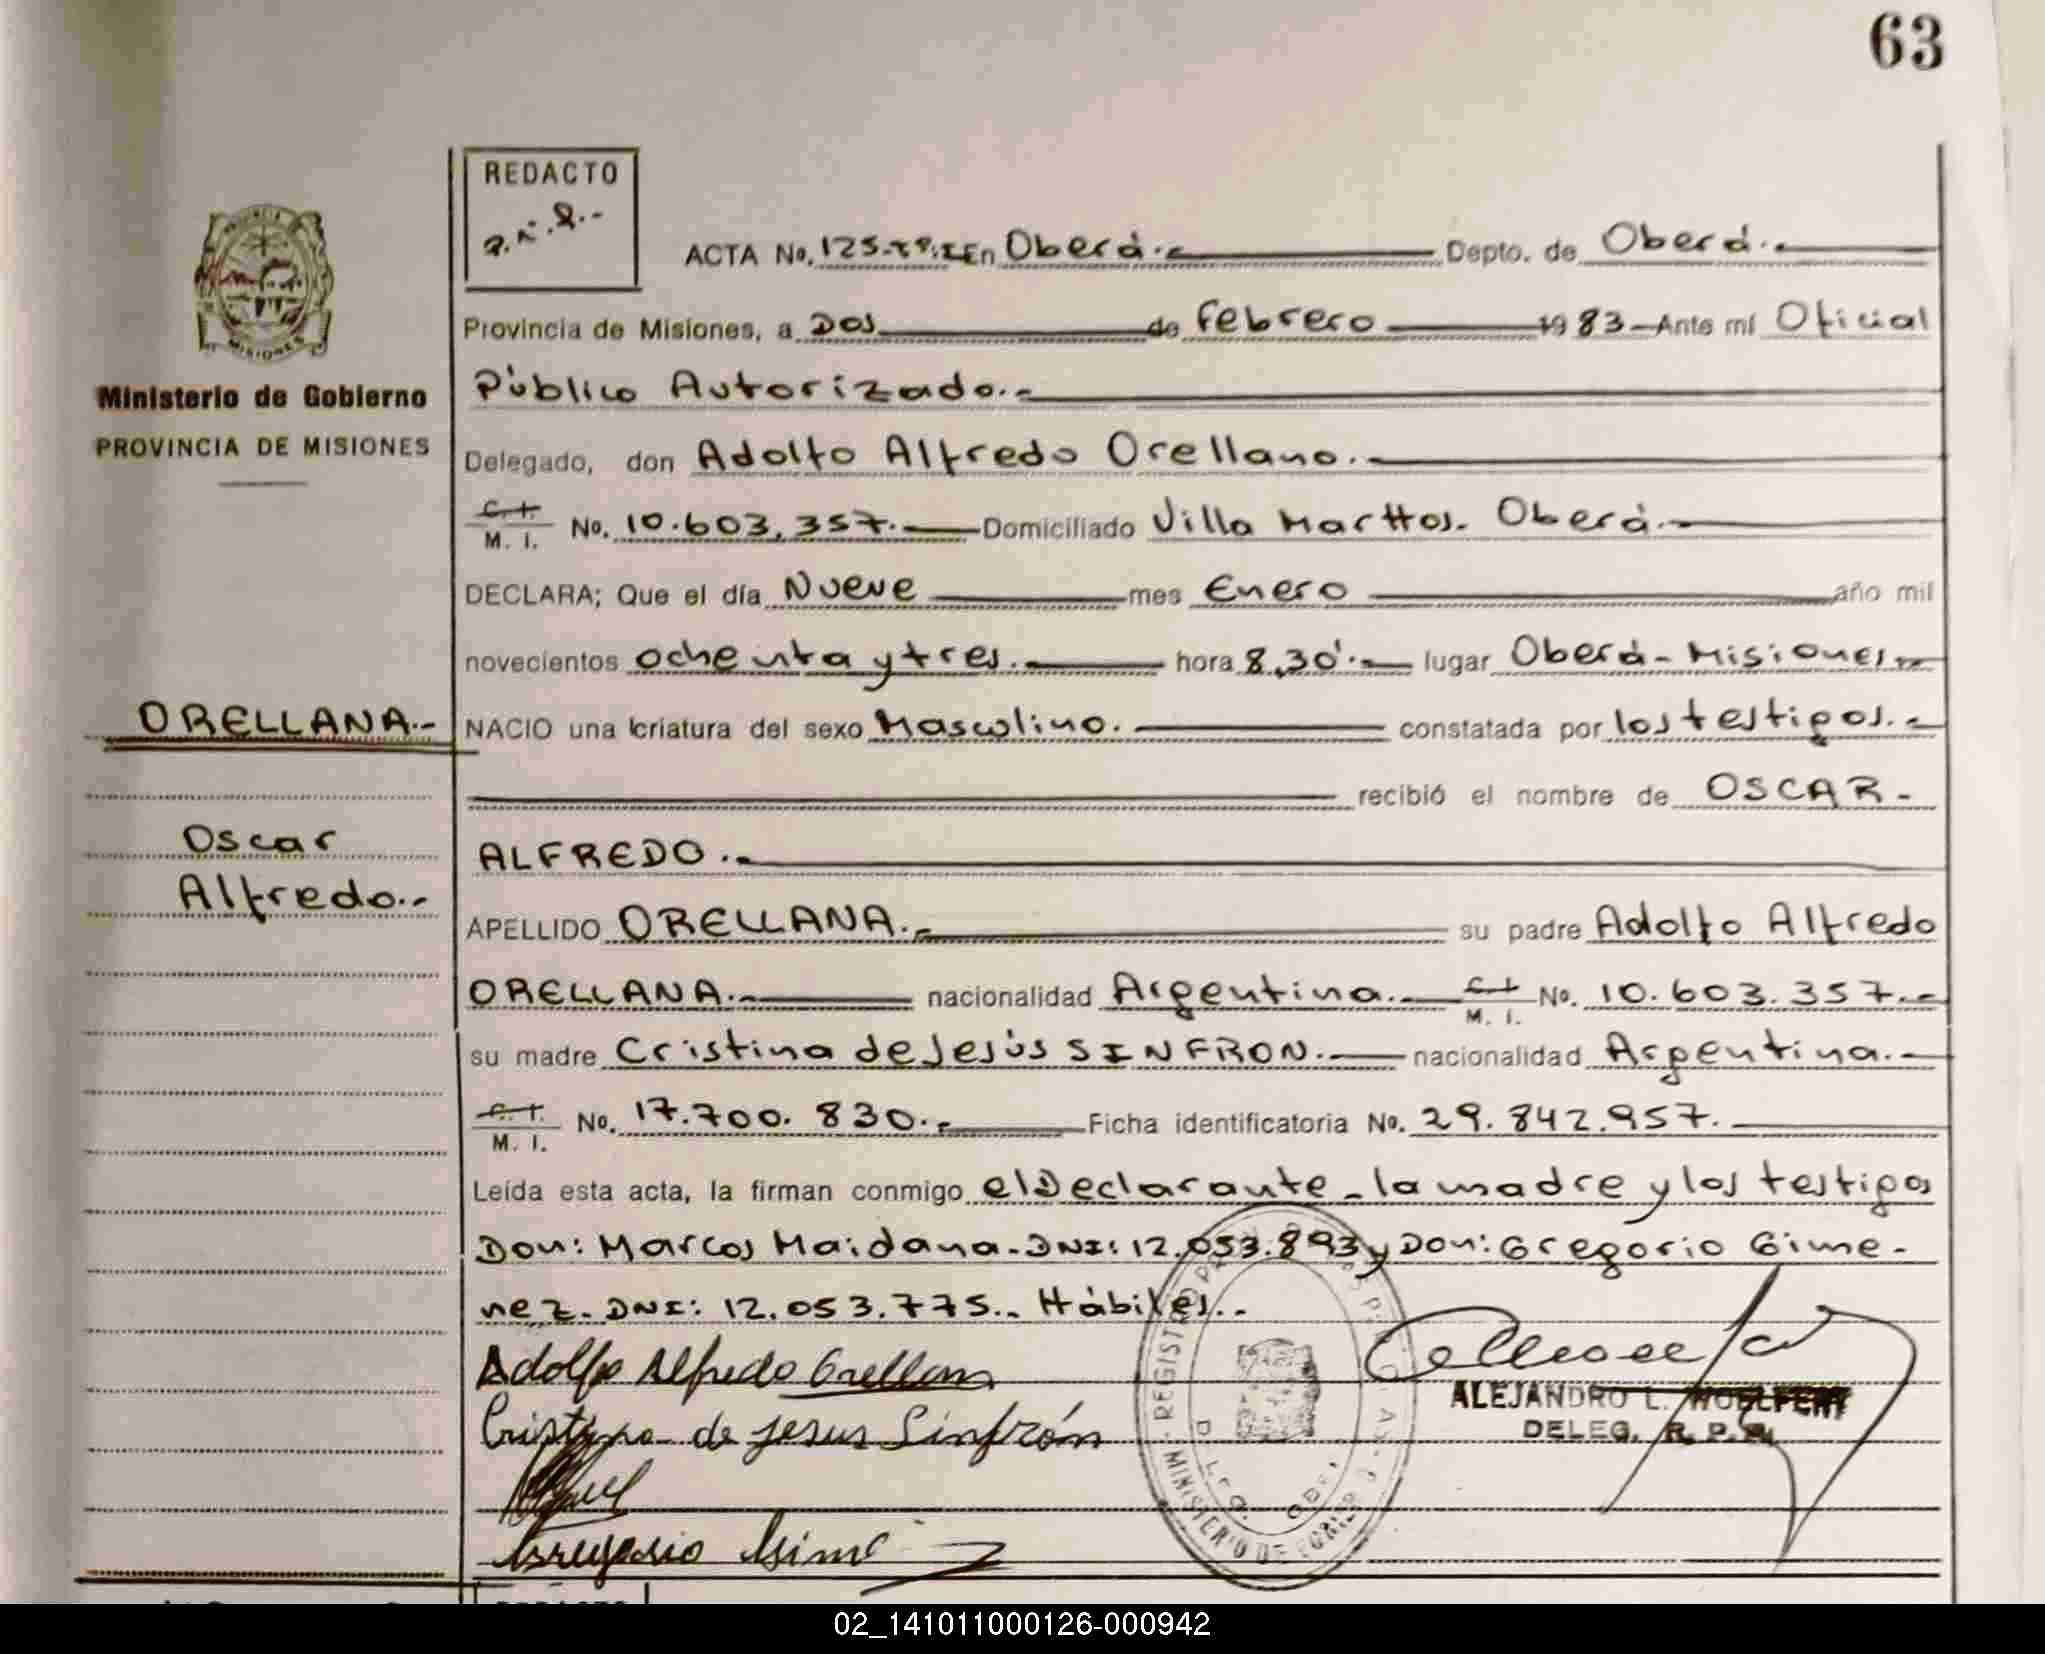 63
REDACTO
ACTA No. 125-Tº.I En Oberá.- Depto. de Oberá.-
Provincia de Misiones, a Dos de Febrero 1983 Ante mí Oficial
Ministerio de Gobierno
Público Autorizado.-
PROVINCIA DE MISIONES
Delegado, don Adolfo Alfredo Orellano.-
C. I.
M. I. No. 10.603.357.- Domiciliado Villa Marttos. Oberá.-
DECLARA; Que el día Nueve mes Enero año mil
novecientos ochenta y tres.- hora 8,30'.- lugar Oberá-Misiones.-
ORELLANA.-
NACIO una criatura del sexo Masculino.- constatada por los testigos.-
recibió el nombre de OSCAR-
Oscar
ALFREDO.-
Alfredo.-
APELLIDO ORELLANA.- su padre Adolfo Alfredo
ORELLANA.- nacionalidad Argentina.- C. I.
M. I. No. 10.603.357.-
su madre Cristina de Jesús SINFRON.- nacionalidad Argentina.-
C. I.
M. I. No. 17.700.830.- Ficha identificatoria No. 29.842.957.
Leída esta acta, la firman conmigo el Declarante - la madre y los testigos
Don: Marcos Maidana-DNI: 12.053.893 y Don: Gregorio Gime-
nez- DNI: 12.053.775.. Hábiles..
Adolfo Alfredo Orellana
Cristina de Jesus Sinfrón
ALEJANDRO L. WOELFERT
DELEG. R. P. P.
REGISTRO
MINISTERIO DE
02_141011000126-000942